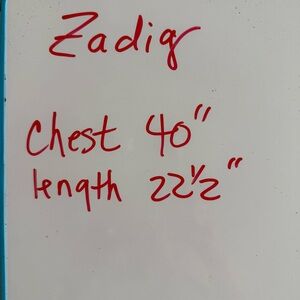 Zadig
Chest 40"
length 22½"